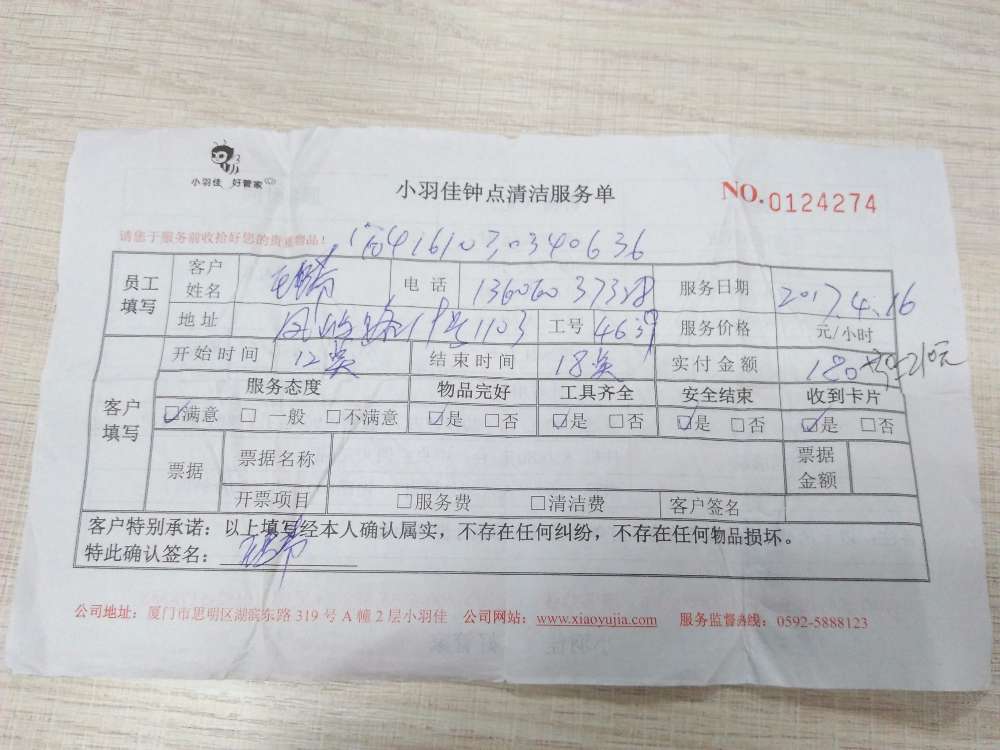 小羽佳 好管家
小羽佳钟点清洁服务单
NO.0124274
请您于服务前收拾好您的贵重物品!
4161030340636
员工填写 客户姓名 电话 服务日期 2017.4.16
地址 1103 工号 服务价格 元/小时
开始时间 12 结束时间 18 实付金额 180
客户填写 服务态度 物品完好 工具齐全 安全结束 收到卡片
☑满意 □一般 □不满意 ☑是 □否 ☑是 □否 ☑是 □否 ☑是 □否
票据 票据名称 票据金额
开票项目 □服务费 □清洁费 客户签名
客户特别承诺：以上填写经本人确认属实，不存在任何纠纷，不存在任何物品损坏。
特此确认签名：
公司地址：厦门市思明区湖滨东路 319 号 A 幢 2 层小羽佳 公司网站：www.xiaoyujia.com 服务监督热线：0592-5888123